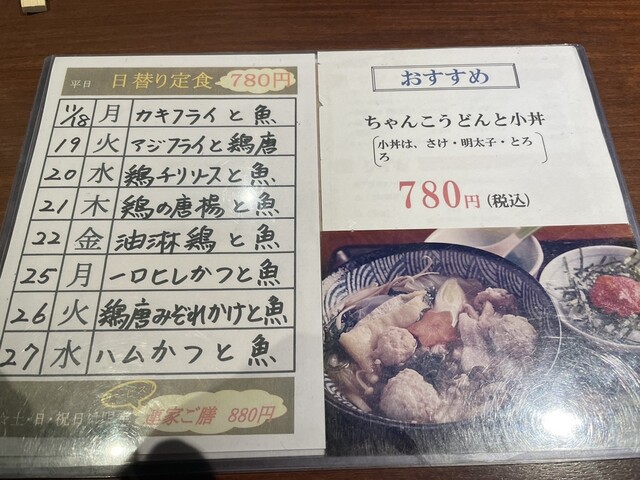 平日 日替り定食 780円
11/18 月 カキフライと魚
19 火 アジフライと鶏唐
20 水 鶏チリソースと魚
21 木 鶏の唐揚と魚
22 金 油淋鶏と魚
25 月 一口ヒレかつと魚
26 火 鶏唐みぞれかけと魚
27 水 ハムかつと魚
土・日・祝日 御膳 880円
おすすめ
ちゃんこうどんと小丼
小丼は、さけ・明太子・とろ
ろ
780円(税込)